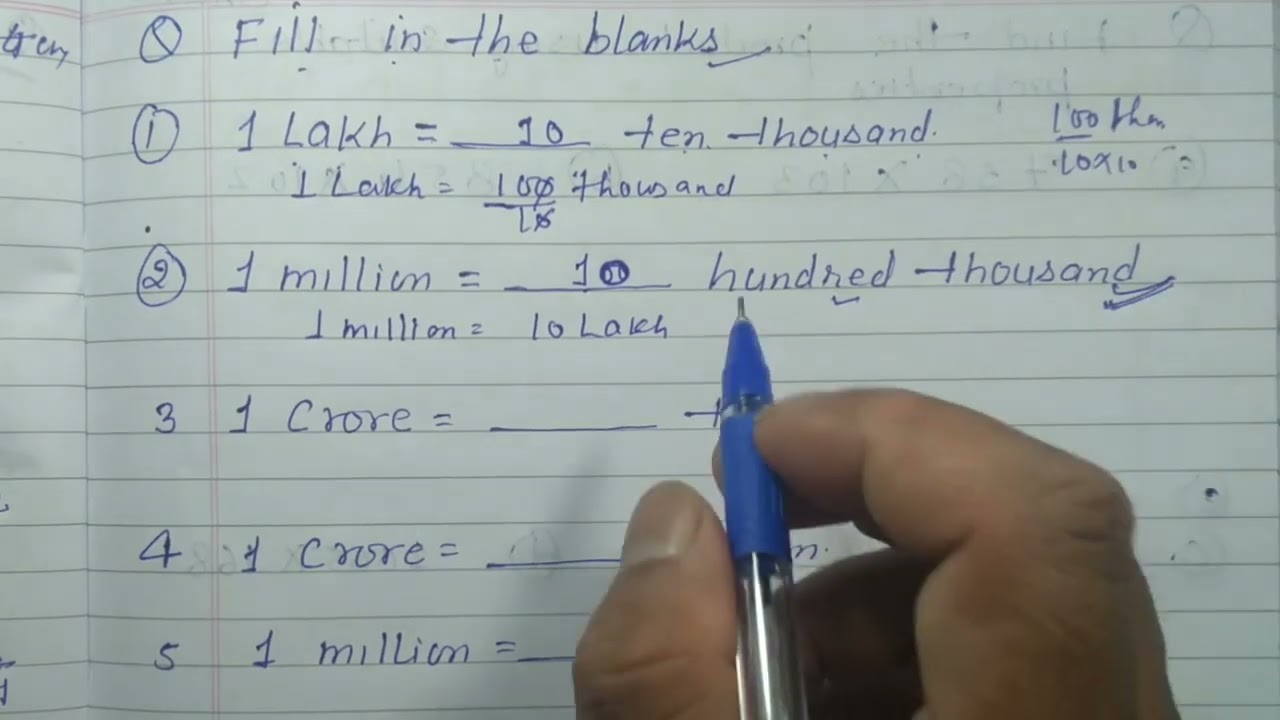 Q Fill in the blanks
① 1 Lakh = 10 ten thousand.
100 thou
10x10 =
1 Lakh = 100 thousand
10
② 1 million = 10 hundred thousand
1 million = 10 Lakh
3 1 Crore =
4 1 Crore =
5 1 million =